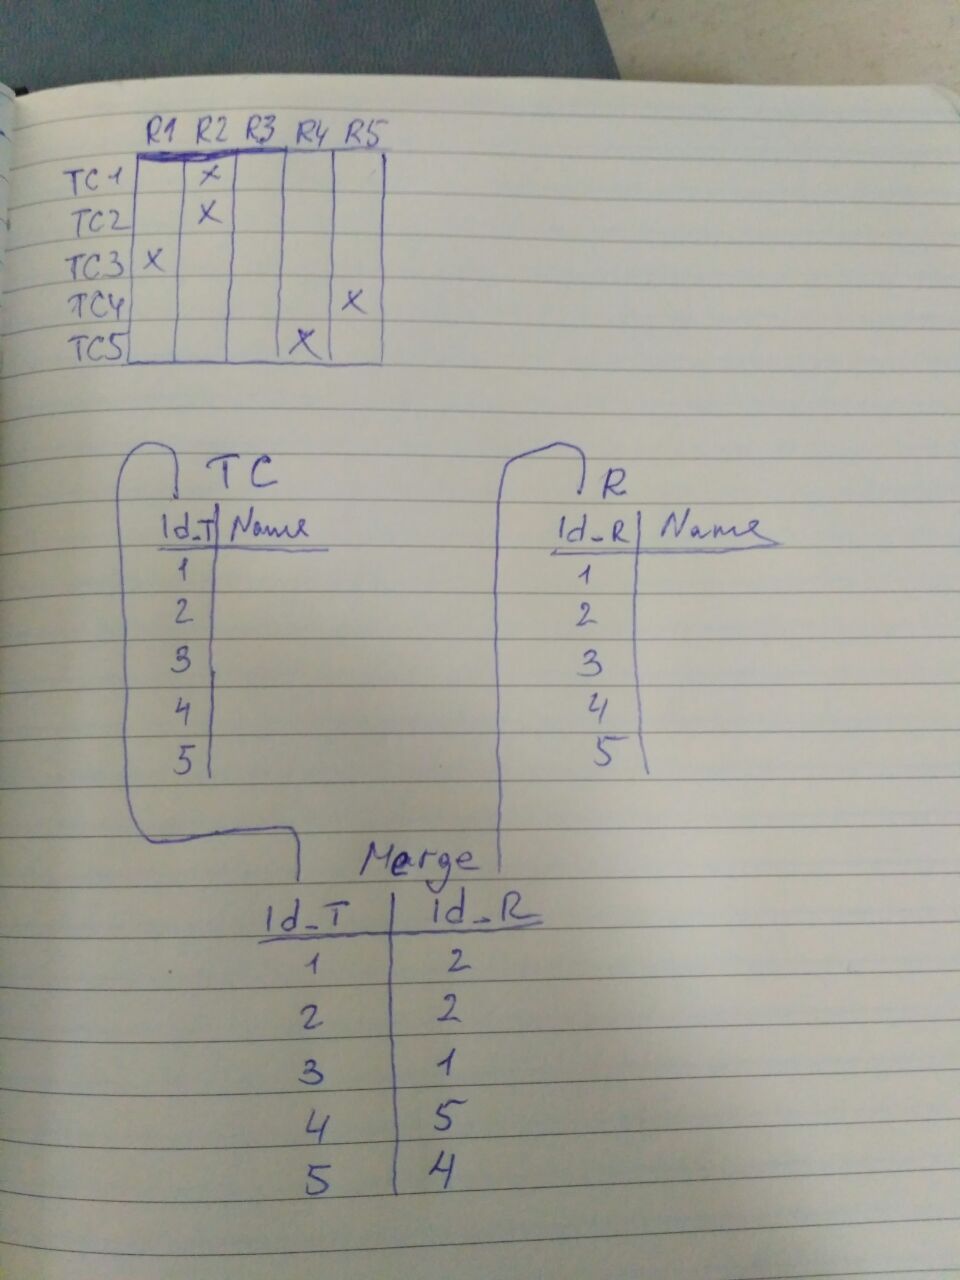 R1 R2 R3 R4 R5
TC1 x
TC2 x
TC3 x
TC4 x
TC5 x
TC
Id_T Name
1
2
3
4
5
R
Id_R Name
1
2
3
4
5
Merge
Id_T Id_R
1 2
2 2
3 1
4 5
5 4